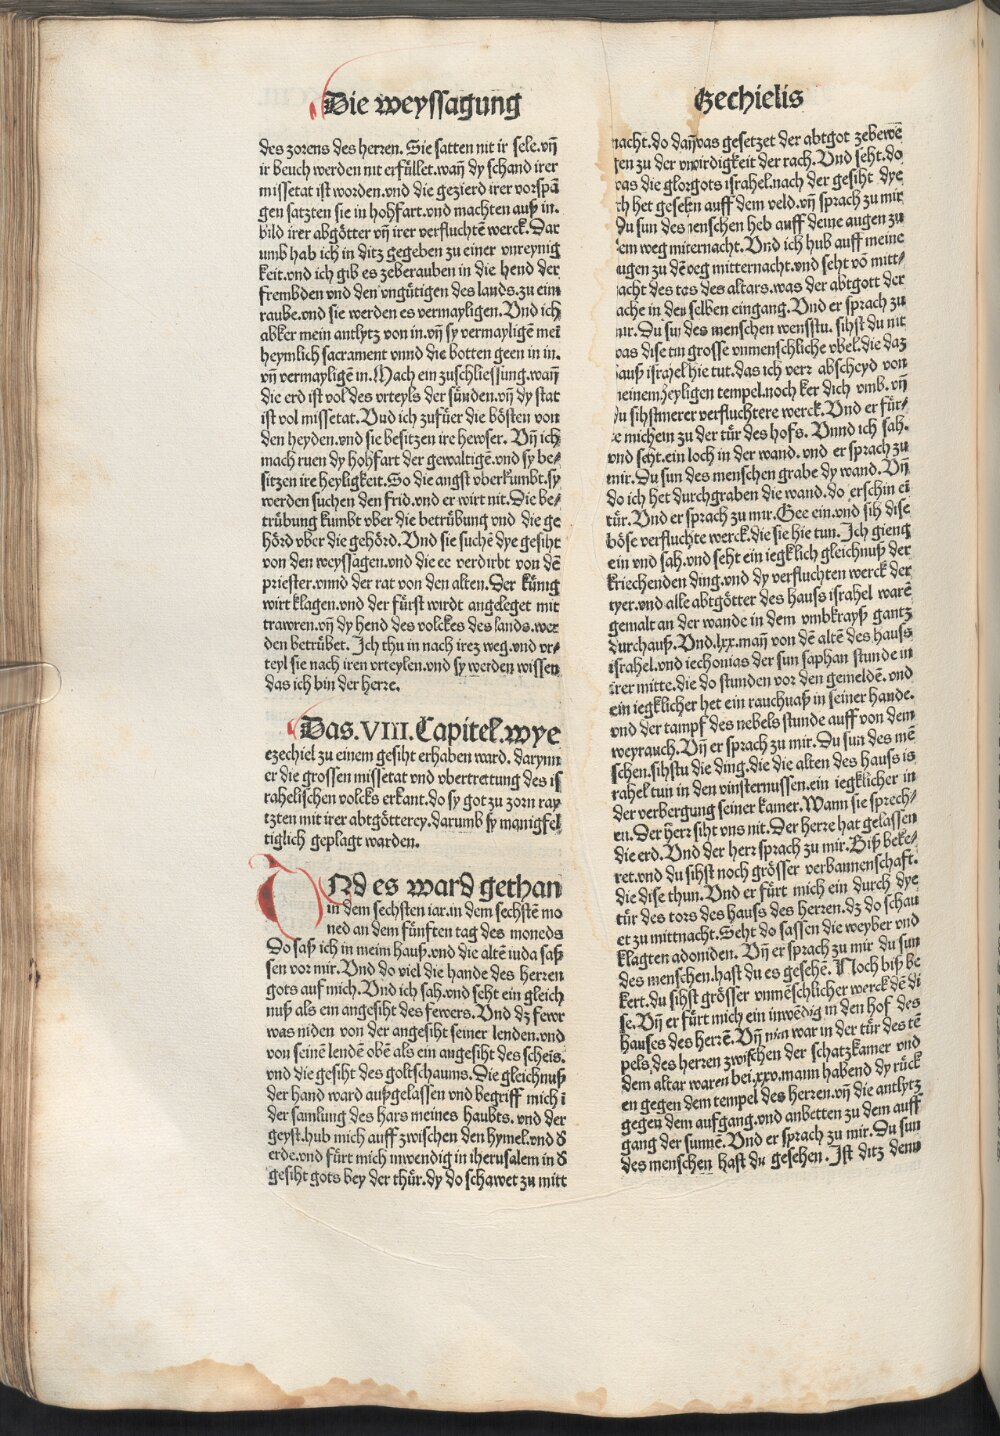 Die weyssagung
Ezechielis
des zorens des herren. Sie satten nit ir sele.vñ
ir beuch werden nit erfüllet.wañ dy schand irer
missetat ist worden.vnd die gezierd irer vorspā
gen satzten sie in hohfart.vnd machten auß in.
bild irer abgötter vñ irer verfluchtē werck.Dar
umb hab ich in ditz gegeben zu einer vnreynig
keit.vnd ich gib es zeberauben in die hend der
frembden vnd den vngütigen des lands.zu eim
raube.vnd sie werden es vermayligen.Vnd ich
abker mein antlytz von in.vñ sy vermayligē mei
heymlich sacrament vnnd die botten geen in in.
vñ vermayligē in.Mach ein zuschliessung.wañ
die erd ist vol des vrteyls der sünden.vñ dy stat
ist vol missetat.Vud ich zufüer die bösten von
den heyden.vnd sie besitzen ire hewser. Vñ ich
mach ruen dy hohfart der gewaltigē.vnd sy be⸗
sitzen ire heyligkeit.So die angst vberkumbt.sy
werden suchen den frid.vnd er wirt nit.Die be⸗
trübung kumbt vber die betrübung vnd die ge
hörd vber die gehörd.Vnd sie suchē dye gesiht
von den weyssagen.vnd die ee verdirbt von dē
priester.vnnd der rat von den alten.Der künig
wirt klagen.vnd der fürst wirdt angeleget mit
trawren.vñ dy hend des volckes des lands.wer
den betrübet. Ich thu in nach irez weg.vnd vr⸗
teyl sie nach iren vrteylen.vnd sy werden wissen
das ich bin der herre.
Das.VIII.Capitel.wye
ezechiel zu einem gesiht erhaben ward. darynn
er die grossen missetat vnd vbertrettung des is
rahelischen volcks erkant.do sy got zu zorn ray
tzten mit irer abgötterey.darumb sy manigfel
tiglich geplagt warden.
VNd es ward gethan
in dem sechsten iar.in dem sechstē mo
ned an dem fünften tag des moneds
Do saß ich in meim hauß.vnd die altē iuda saß
sen vor mir.Vnd do viel die hande des herren
gots auf mich.Vnd ich sah.vnd seht ein gleich
nuß als ein angesiht des fewers.Vnd dz fewr
was niden von der angesiht seiner lenden.vnd
von seinē lendē obē als ein angesiht des scheis.
vnd die gesiht des goltschaums.Die gleichnuß
der hand ward außgelassen vnd begriff mich ī
der samlung des hars meines haubts. vnd der
geyst.hub mich auff zwischen den hymel.vnd d̄
erde.vnd fürt mich inwendig in iherusalem in d̄
gesiht gots bey der thür.dy do schawet zu mitt
nacht.do dañ was gesetzet der abtgot zebewē
gen zu der wirdigkeit der rach.Vnd seht.do
was die glori gots israhel.nach der gesiht dye
ich het gesehn auff dem veld.vñ sprach zu mir
Du sun des menschen heb auff deine augen zu
dem weg miternacht.Vnd ich hub auff meine
augen zu dē weg mitternacht.vnd seht vō mitt⸗
nacht des tos des altars.was der abtgott der
rache in den selben eingang.Vnd er sprach zu
mir.Du sun des menschen wenstu. sihst du nit
was dise tun grosse vnmenschliche vbel.die daz
hauß israhel hie tut.das ich verr abscheyd von
meinem heyligen tempel.noch ker dich vmb.vñ
du sihst merer verfluchtere werck.Vnd er für⸗
te mich ein zu der tür des hofs. Vnnd ich sah.
vnd seht.ein loch in der wand. vnd er sprach zu
mir.Du sun des menschen grabe dy wand.Vñ
do ich het durchgraben die wand.do erschin eī
tür.Vnd er sprach zu mir.Gee ein.vnd sih dise
böse verfluchte werck.die sie hie tun.Ich gieng
ein vnd sah.vnd seht ein iegklich gleichnuß der
kriechenden ding.vnd dy verfluchten werck der
tyer.vnd alle abtgötter des hauss israhel warē
gemalt an der wande in dem vmbkrayß gantz
durchauß.Vnd.lxx.mañ von dē altē des hauss
israhel.vnd iechonias der sun saphan stunde in
irer mitte.die do stunden vor den gemeldē.vnd
ein iegklicher het ein rauchuaß in seiner hande.
vnd der tampf des nebels stunde auff von dem
weyrauch.Vñ er sprach zu mir.Du sun des mē
schen.sihstu die ding.die die alten des hauss is
rahel tun in den vinsternussen.ein iegklicher in
der verbergung seiner kamer.Wann sie sprech⸗
en.Der herr siht vns nit.Der herre hat gelassen
die erd.Vnd der herr sprach zu mir.Biß beke⸗
ret.vnd du sihst noch grösser verbannenschaft.
die dise thun.Vnd er fürt mich ein durch dye
tür des tors des hauss des herren.dz do schau
et zu mittnacht.Seht do sassen die weyber vnd
klagten adoniden. Vñ er sprach zu mir du sun
des menschen.hast du es gesehē.Noch biß be
kert.du sihst grösser vnmēschlicher werck dē di
se.Vñ er fürt mich ein inwēdig in den hof des
hauses des herrē.Vñ nim war in der tür des tē
pels.des herren zwischen der schatzkamer vnd
dem altar waren bei.xxv.mann habend dy rück
en gegen dem tempel des herren.vñ die antlytz
gegen dem aufgang.vnd anbetten zu dem auff
gang der sunnē.Vnd er sprach zu mir.Du sun
des menschen hast du gesehen.Ist ditz denn